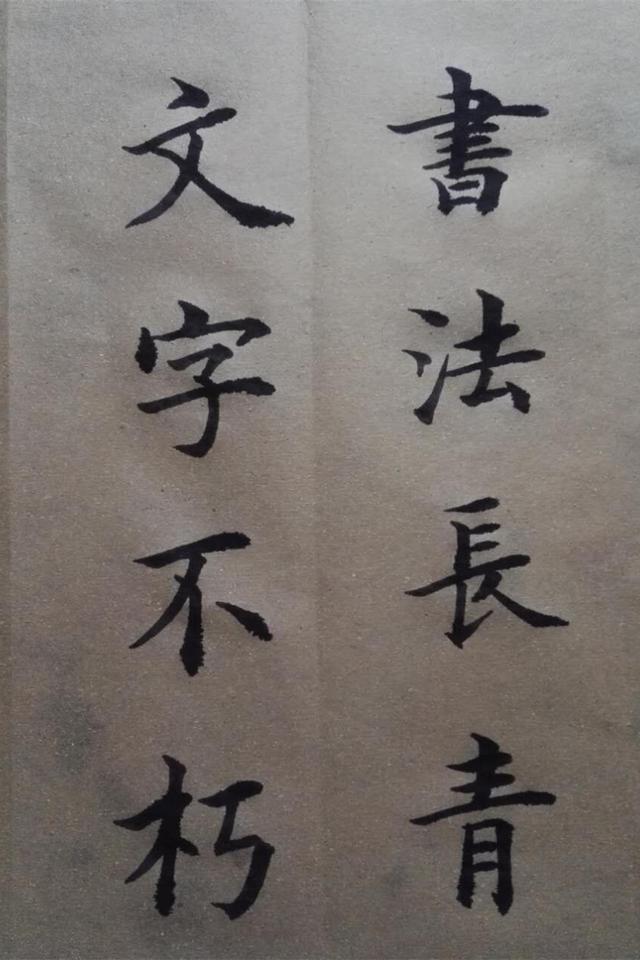 書法長青
文字不朽